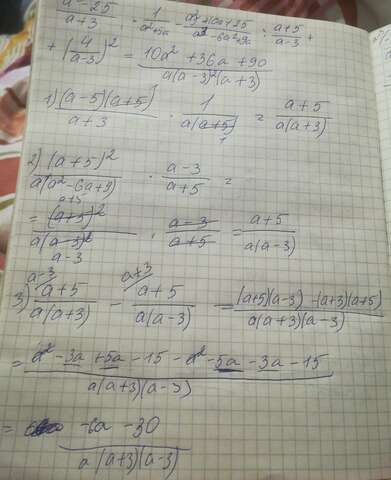 a²-25/a+3 · 1/a²+5a - a²+10a+25/a³-6a²+9a : a+5/a-3 +
+ (4/a-3)² = 10a² + 36a + 90/a(a-3)²(a+3)
1) (a-5)(a+5)/a+3 · 1/a(a+5) = a+5/a(a+3)
2) (a+5)²/a(a²-6a+9) · a-3/a+5 =
= (a+5)²/a(a-3)² · a-3/a+5 = a+5/a(a-3)
3) a+5/a(a+3) - a+5/a(a-3) = (a+5)(a-3) -(a+3)(a+5)/a(a+3)(a-3)
= a² -3a +5a -15 -a² -5a -3a -15/a(a+3)(a-3)
= -6a -30/a(a+3)(a-3)